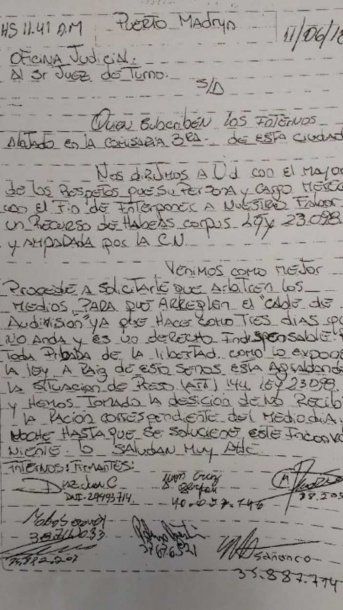 HS 11.41 A.M PUERTO MADRYN 11/06/18
OFICINA JUDICIAL.
Al Sr JUEZ de TURNO.
S/D
QUIEN SUBSCRIBEN LOS INTERNOS
Alojado EN la COMISARIA 3RA. de ESTA CIUDAD
NOS DIRIJIMOS A Ud CON EL MAYOR
de los RESPETOS QUE SU PERSONA y CARGO MERECE
CON EL FIN de INTERPONER A NUESTRO FAVOR
UN RECURSO de HABEAS CORPUS LEY 23.098
y AMPARADA POR la C.N
VENIMOS COMO MEJOR
PROCEDE A SOLICITARLE QUE ARBITREN los
MEDIOS, PARA QUE ARREGLEN EL "CABLE de
AUDIVISION" YA QUE HACE COMO TRES DIAS QUE
NO ANDA y ES UN DERECHO INDISPENSABLE
TODA PRIBADA de la LIBERTAD. COMO lo EXPONE
la lEY. A RAIZ de ESTO SENOS ESTA AGRABANDO
la SITUACION de PRESO (ART) 144 LEY 23098
y HEMOS TOMADO LA DESICION de NO RECIBIR
la RACION CORRESPONDIENTE del MEDIO DIA y
NOCHE HASTA QUE SE SOLUCIONE ESTE INCONVE
NIENTE. lo SALUDAN MUY ATTE
INTERNOS: FIRMANTES:
DNI: 29493714
40.
35.887.774